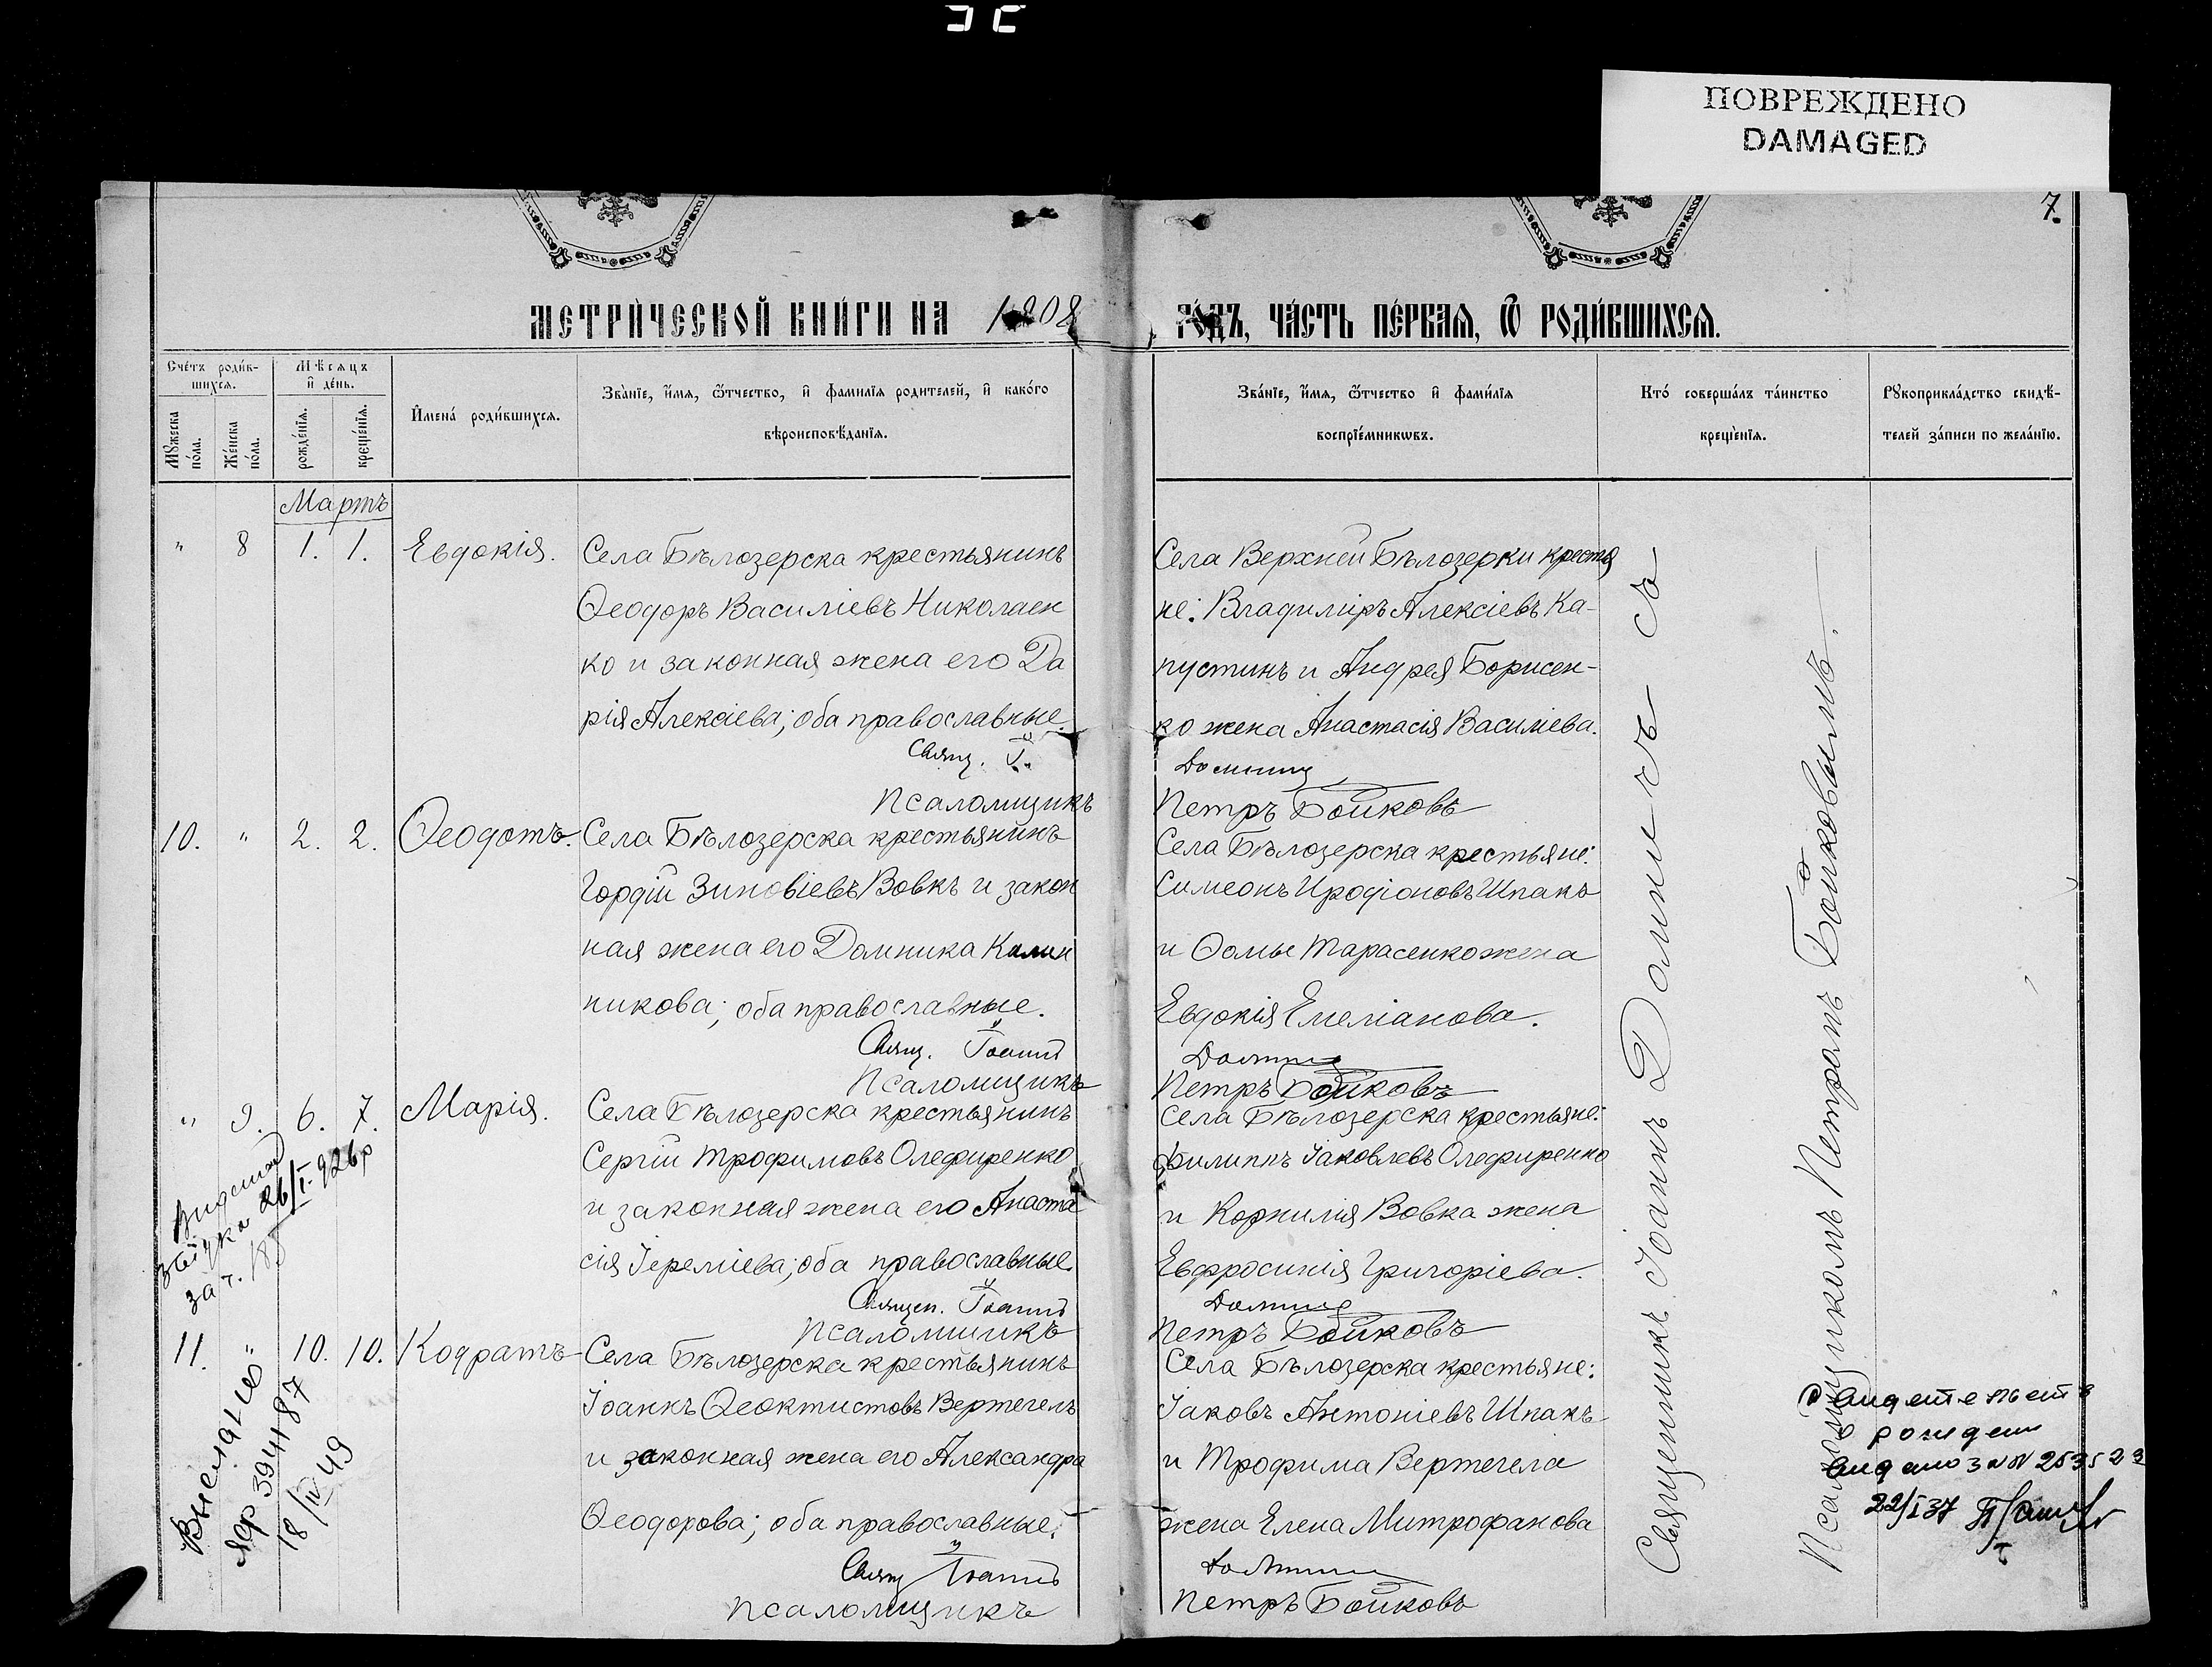 ПОВРЕЖДЕНО
DAMAGED
7.
МЕТРИЧЕСКОЙ КНИГИ НА 1908 ГОДЪ, ЧАСТЬ ПЕРВАЯ, Ѿ РОДИВШИХСЯ.
Счетъ родив-
шихся.
Мѣсяцъ
и день.
Мужеска
пола.
Женска
пола.
рожденія.
крещенія.
Имена родившихся.
Званіе, имя, ѿтчество, и фамилія родителей, и какого
вѣроисповѣданія.
Званіе, имя, ѿтчество и фамилія
воспріемниковъ.
Кто совершалъ таинство
крещенія.
Рукоприкладство свидѣ-
телей записи по желанію.
Мартъ
" 8 1. 1. Евдокія.
Села Бѣлозерска крестьянинъ
Ѳеодоръ Василіевъ Николаен
ко и законная жена его Да
рія Алексіева; оба православные.
Села Верхней Бѣлозерки крестья
не: Владиміръ Алексіевъ Ка-
пустинъ и Андрея Борисен-
ко жена Анастасія Василіева.
Свящ. І.
Псаломщикъ Петръ Бойковъ
10. " 2. 2. Ѳеодотъ.
Села Бѣлозерска крестьянинъ
Гордій Зиновіевъ Вовкъ и закон
ная жена его Домника Калин
никова; оба православные.
Села Бѣлозерска крестьяне:
Симеонъ Иродіоновъ Шпакъ
и Ѳомы Тарасенко жена
Евдокія Емеліанова.
Свящ. Іоаннъ
Псаломщикъ Петръ Бойковъ
" 9. 6. 7. Марія.
Села Бѣлозерска крестьянинъ
Сергій Трофимовъ Олефиренко
и законная жена его Анаста
сія Іереміева; оба православные.
Села Бѣлозерска крестьяне:
Филиппъ Іаковлевъ Олефиренко
и Корнилія Вовка жена
Евфросинія Григоріева.
Священ. Іоаннъ
Псаломщикъ Петръ Бойковъ
26/I-926р
за ч. 185
11. " 10. 10. Кодратъ
Села Бѣлозерска крестьянинъ
Іоаннъ Ѳеоктистовъ Вертегелъ
и законная жена его Александра
Ѳеодорова; оба православные.
Села Бѣлозерска крестьяне:
Іаковъ Антоніевъ Шпакъ
и Трофима Вертегела
жена Елена Митрофанова
Свящ Іоаннъ
Псаломщикъ Петръ Бойковъ
394187
18/IV 49
Священникъ Іоаннъ съ
Псаломщикомъ Петромъ Бойковымъ.
22/I 37